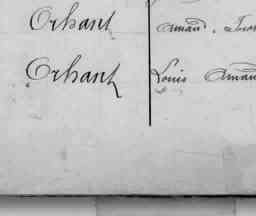 Orhant Armand,
Orhant Louis Armand